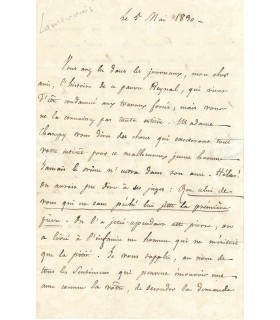 Lamennais
Le 5 Mai 1830 -
Vous avez lu dans les journaux, mon cher
ami, l'histoire de ce pauvre Reynal, qui vient
d'être condamné aux travaux forcés, mais vous
ne la connaissez pas toute entière. Madame
Champy vous dira des choses qui exciteront tout
votre intérêt pour ce malheureux jeune homme.
Jamais le crime n'entra dans son ame. Hélas!
On aurait pu dire à ses juges: Que celui de
vous qui est sans péché lui jette la première
pierre. On l'a jetée cependant cette pierre, on
a livré à l'infamie un homme qui ne méritait
que la pitié. Je vous supplie, au nom de
tous les sentimens qui peuvent émouvoir une
ame comme la vôtre, de seconder la demande